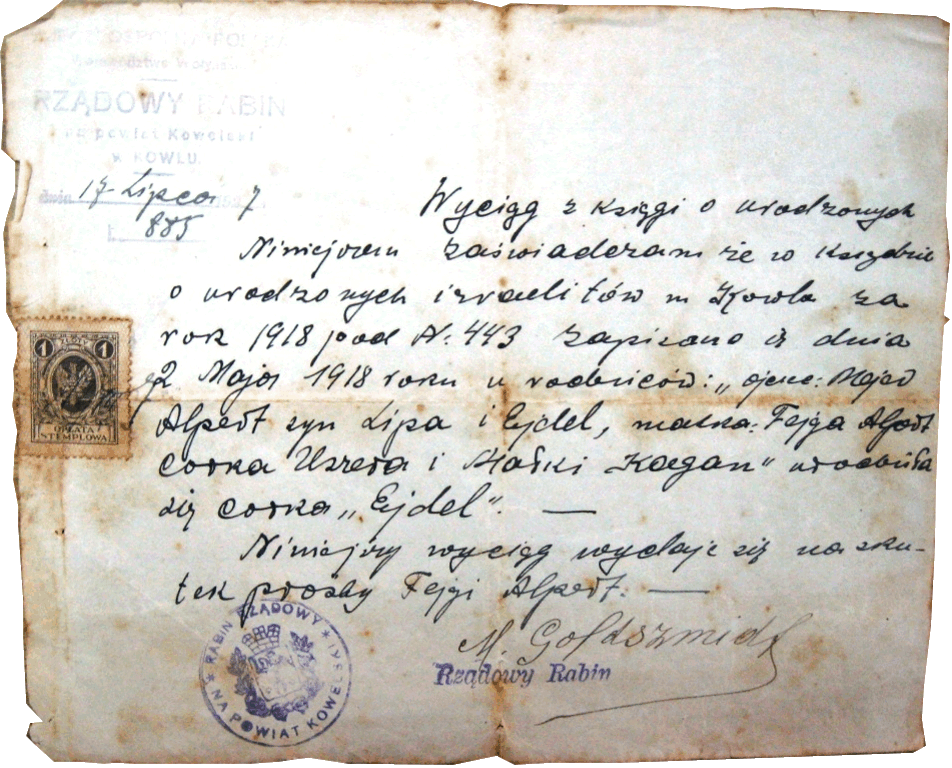 RZECZPOSPOLITA POLSKA
Województwo Wołyńskie
RZĄDOWY RABIN
na powiat Kowelski
w KOWLU.
dnia 17 Lipca 193 7
885
Wyciąg z księgi o urodzonych
Niniejszem zaświadczam że w księdze
o urodzonych izraelitów m Kowla za
rok 1918 pod N. 443 zapisano iż dnia
2 Maja 1918 roku u rodziców: „ojciec:
Alpert syn Lipa i Ejdel, matka: Fejga Alpert
corka Uszera i Małki Kagan" urodziła
się corka „Ejdel". —
Niniejszy wyciąg wydaje się na sku-
tek prośby Fejgi Alpert. —
M. Goldszmidt
Rządowy Rabin
1 ZŁOTY 1
OPŁATA
STEMPLOWA
* RABIN RZĄDOWY *
NA POWIAT KOWELSKI